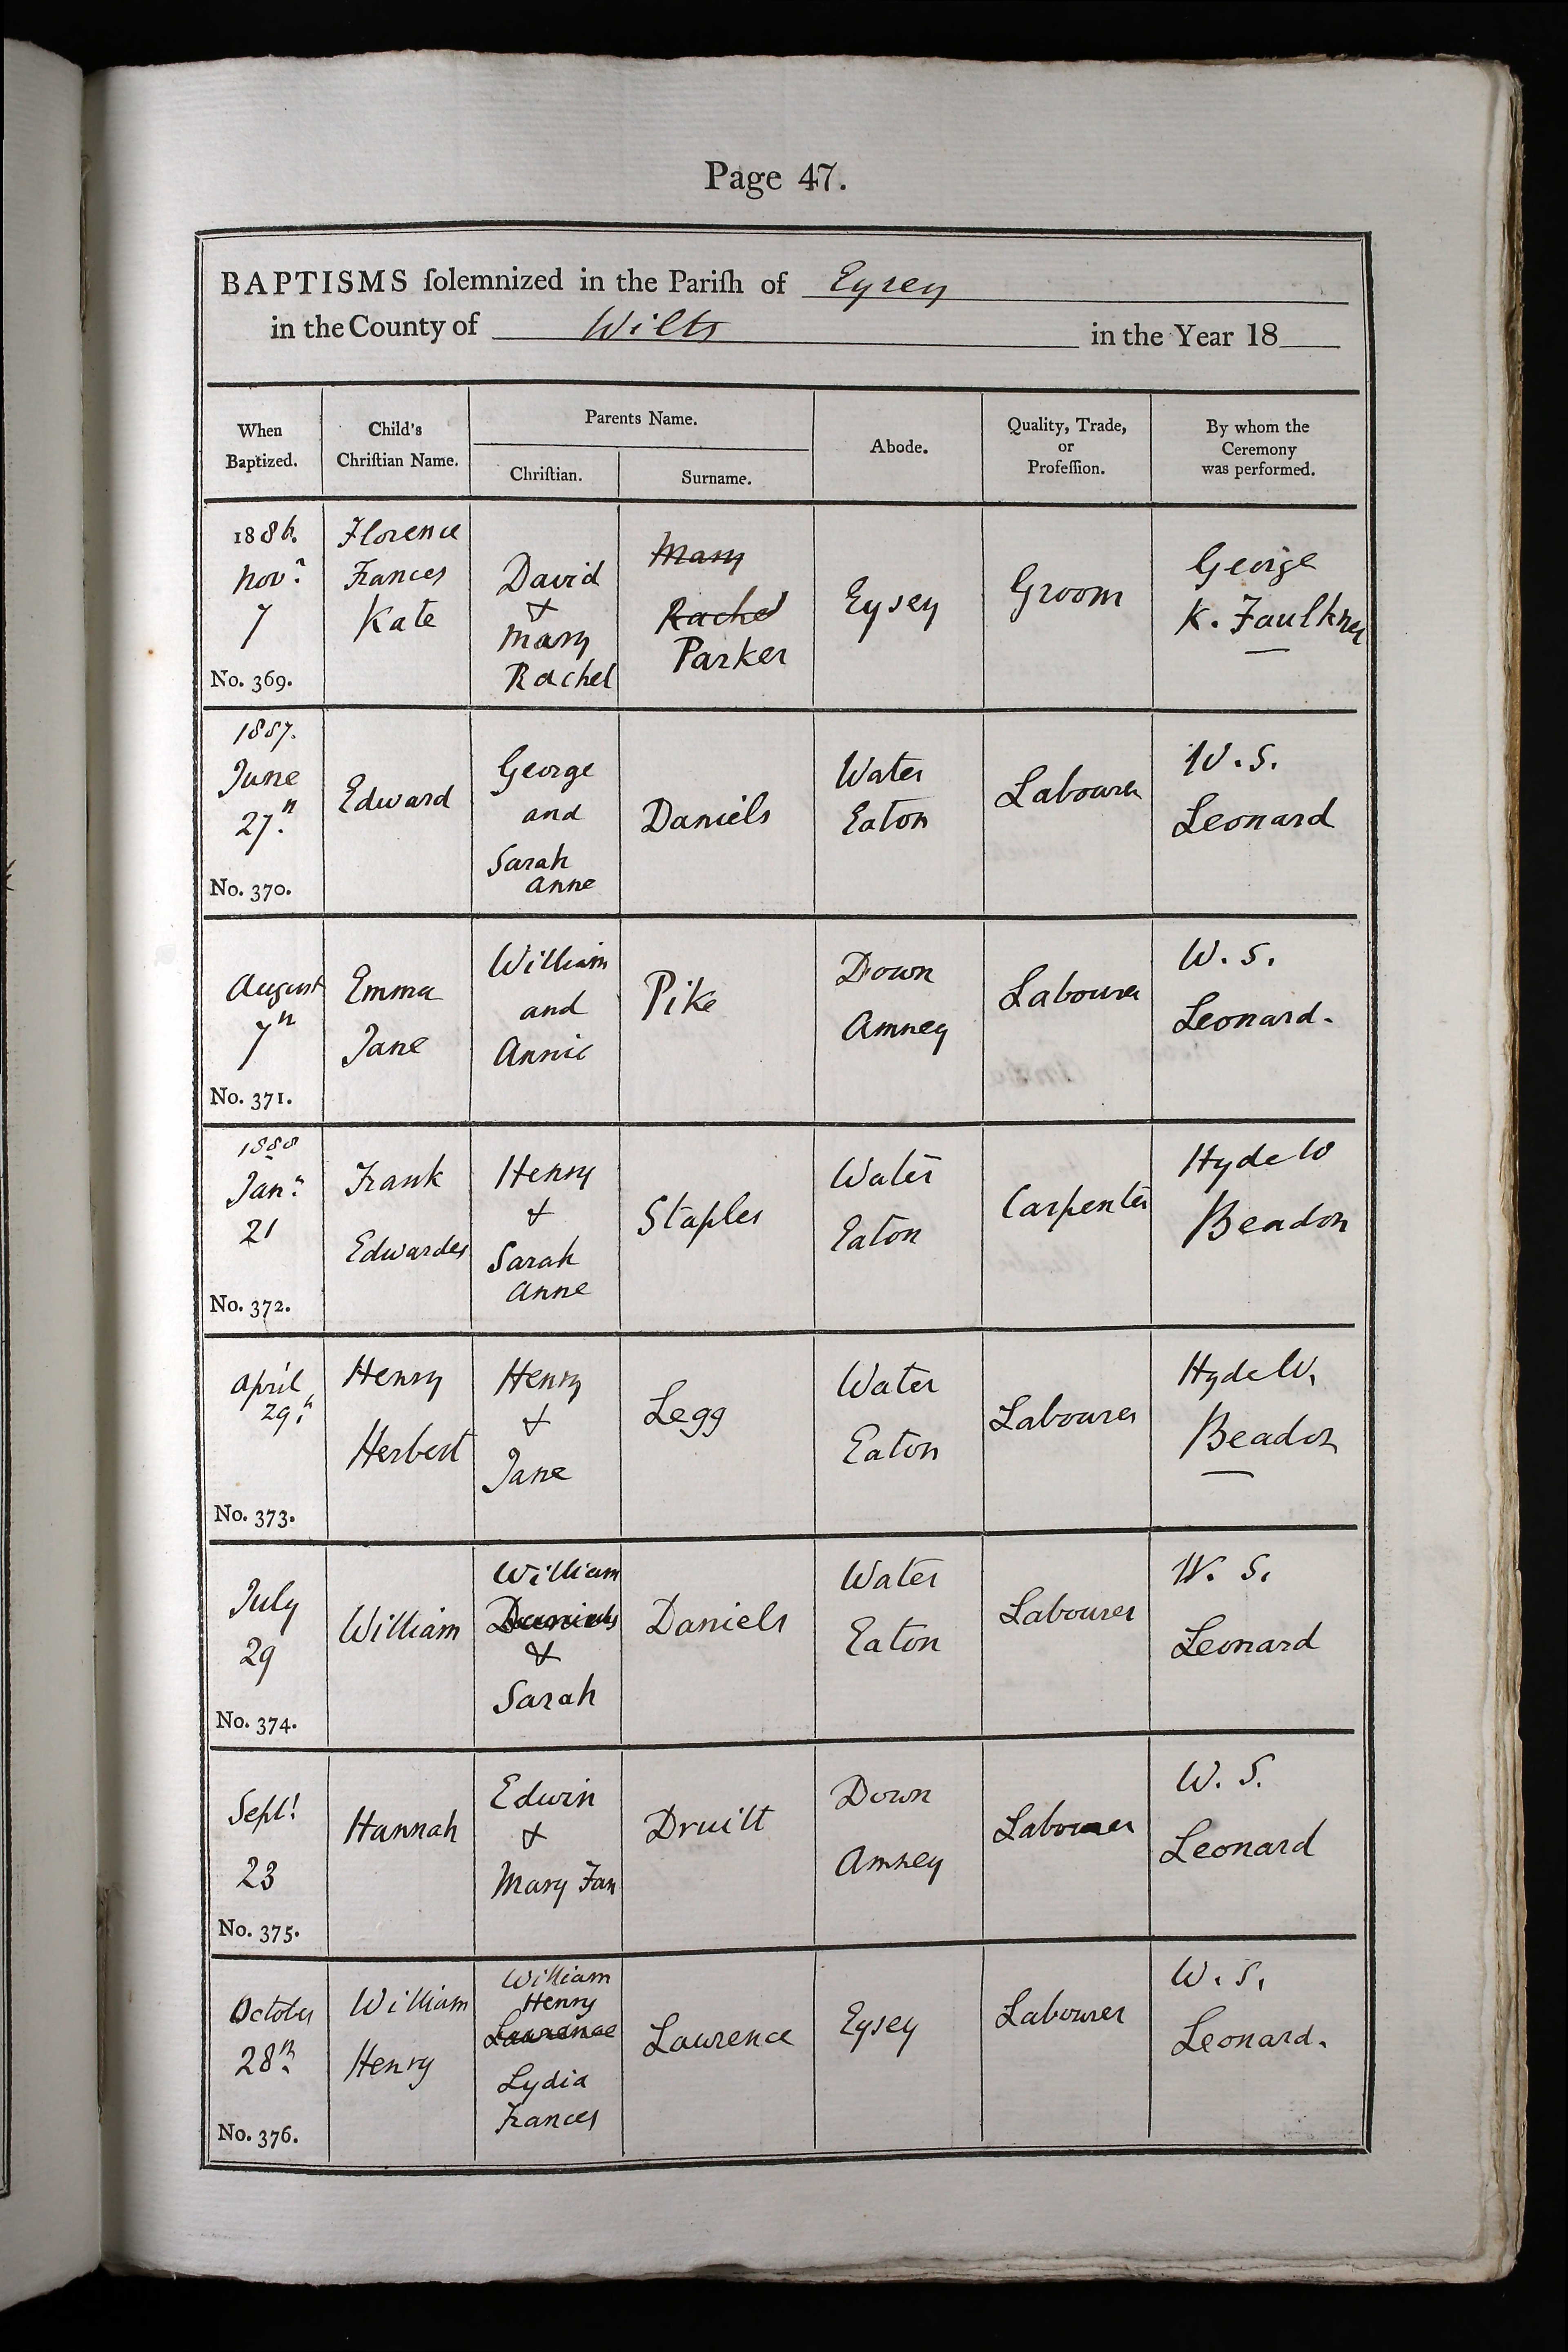 Page 47.
BAPTISMS ſolemnized in the Pariſh of Eysey
in the County of Wilts in the Year 18
When
Baptized.
Child's
Chriſtian Name.
Parents Name.
Chriſtian.
Surname.
Abode.
Quality, Trade,
or
Profeſſion.
By whom the
Ceremony
was performed.
1886.
Novr.
7
No. 369.
Florence
Frances
Kate
David
+
Mary
Rachel
Mary
Rachel
Parker
Eysey
Groom
George
K. Faulkner
1887.
June
27.n
No. 370.
Edward
George
and
Sarah
Anne
Daniels
Water
Eaton
Labourer
W. S.
Leonard
August
7n
No. 371.
Emma
Jane
William
and
Annie
Pike
Down
Amney
Labourer
W. S.
Leonard.
1888
Jan.r
21
No. 372.
Frank
Edwardes
Henry
+
Sarah
Anne
Staples
Water
Eaton
Carpenter
Hyde W
Beadon
April
29.n
No. 373.
Henry
Herbert
Henry
+
Jane
Legg
Water
Eaton
Labourer
Hyde W.
Beadon
July
29
No. 374.
William
William
Daniels
&
Sarah
Daniels
Water
Eaton
Labourer
W. S.
Leonard
Sept.
23
No. 375.
Hannah
Edwin
+
Mary Jan
Druitt
Down
Amney
Labourer
W. S.
Leonard
October
28th
No. 376.
William
Henry
William
Henry
Lawrence
Lydia
Frances
Lawrence
Eysey
Labourer
W. S.
Leonard.